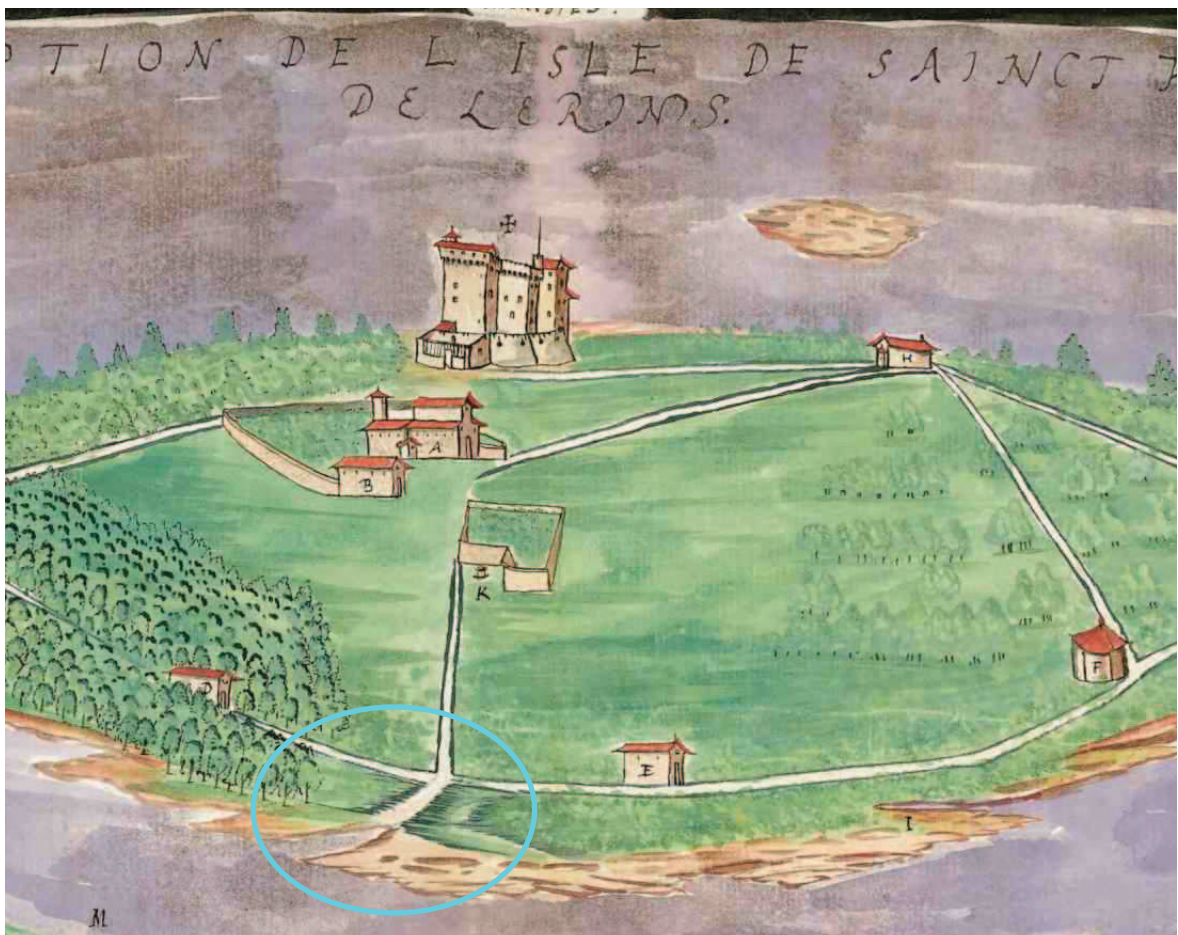 TION DE L'ISLE DE SAINCT
DE LERINS.
H
A
B
K
F
D
E
I
M